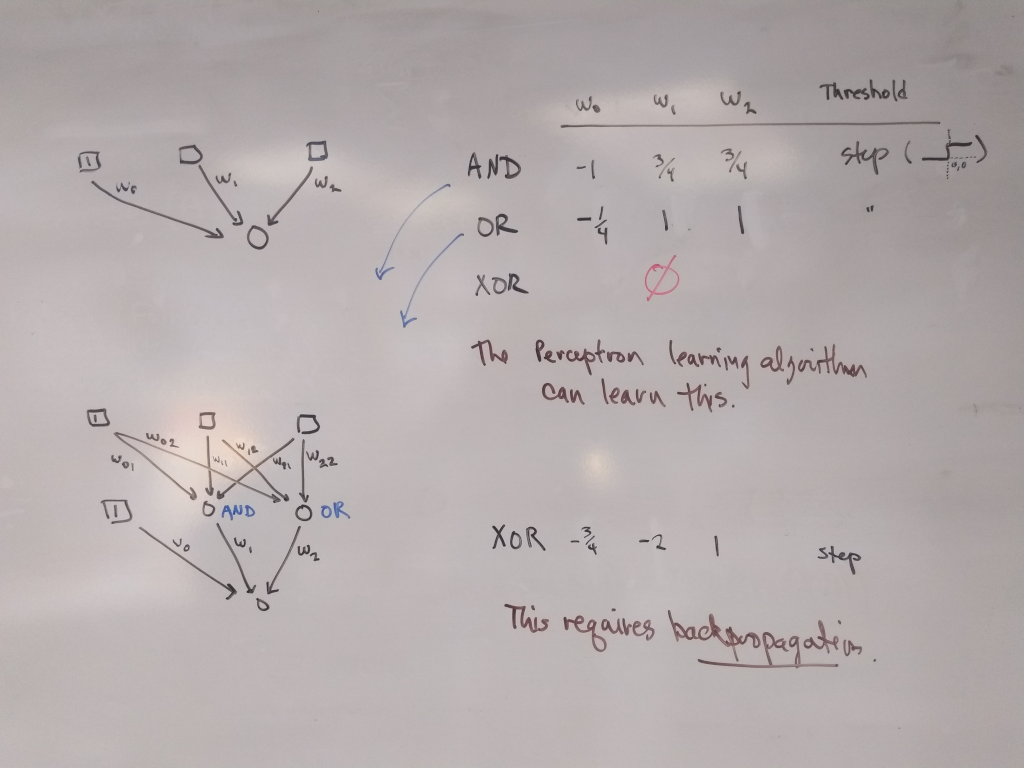 w₀ w₁ w₂ Threshold
1 w₀ w₁ w₂
AND -1 3/4 3/4 step ( 0,0 )
OR -1/4 1 1 "
XOR ∅
The Perceptron learning algorithm
can learn this.
1 w₀₂ w₁₂
w₀₁ w₁₁ w₂₁ w₂₂
1 AND OR
w₀ w₁ w₂
XOR -3/4 -2 1 step
This requires backpropagation.